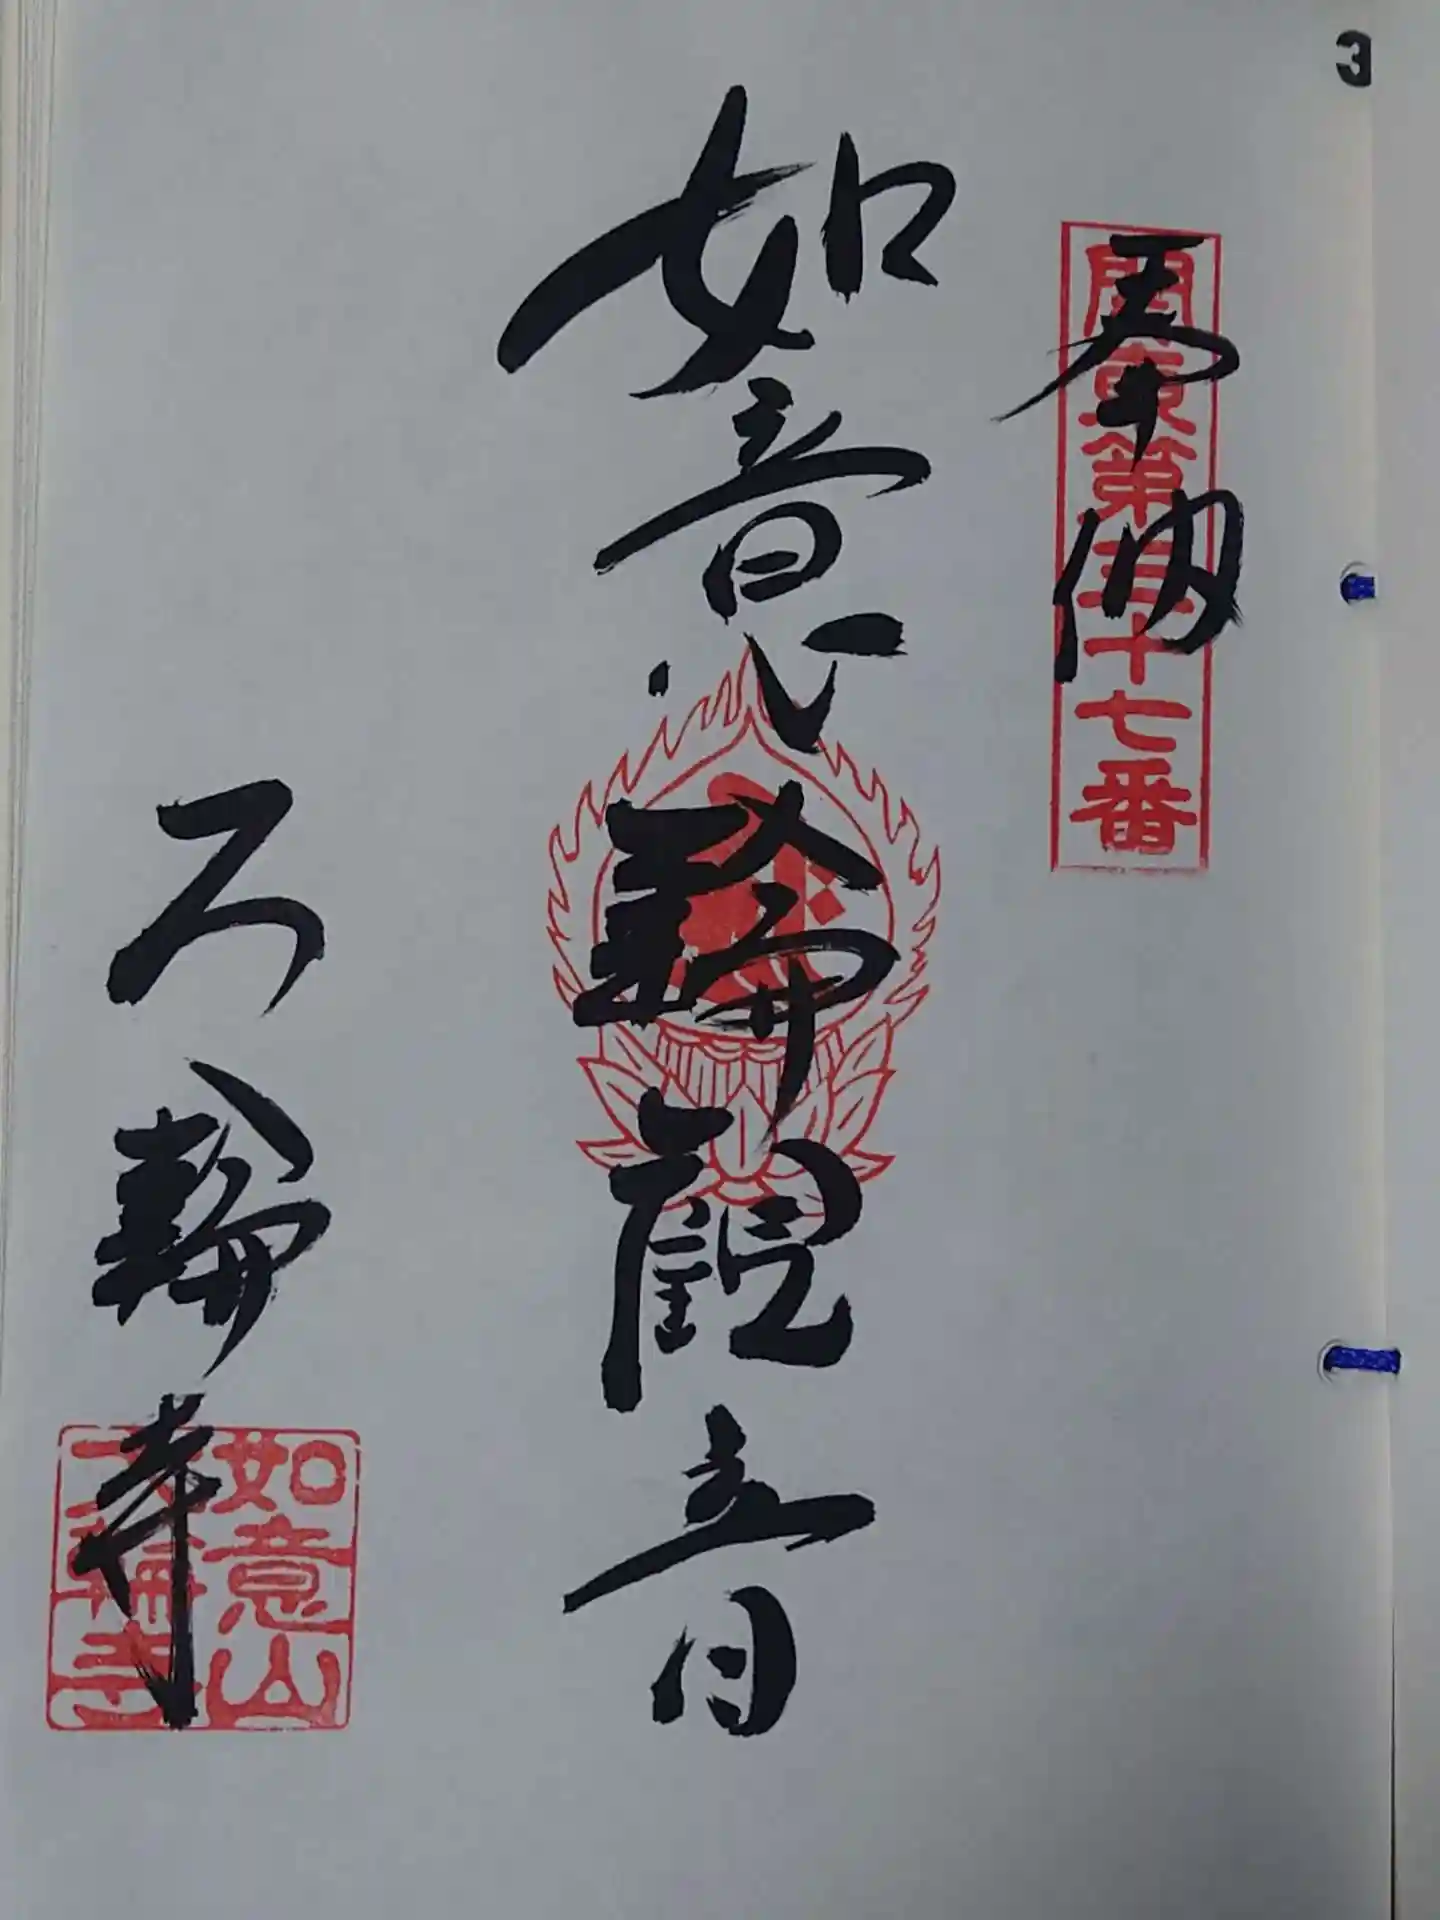 3
奉納
関東第三十七番
如意輪観音
大輪寺
如意山
大輪寺